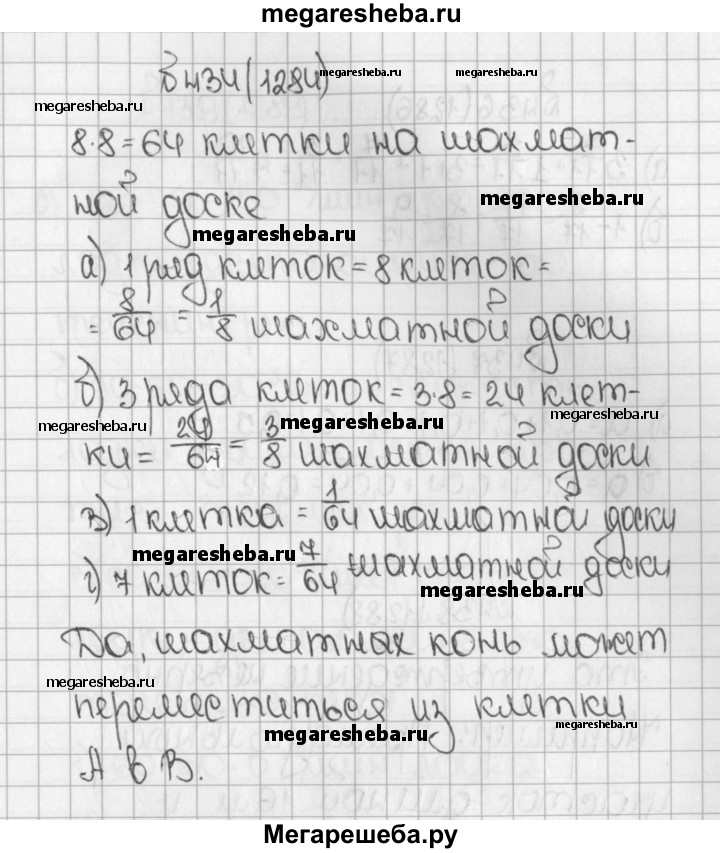 megaresheba.ru
В 434 (1284) megaresheba.ru megaresheba.ru
megaresheba.ru
8·8=64 клетки на шахмат-
ной доске megaresheba.ru
megaresheba.ru
а) 1 ряд клеток = 8 клеток =
= 8/64 = 1/8 шахматной доски
megaresheba.ru
б) 3 ряда клеток = 3·8 = 24 клет-
megaresheba.ru megaresheba.ru megaresheba.ru
ки = 24/64 = 3/8 шахматной доски
в) 1 клетка = 1/64 шахматной доски
megaresheba.ru
г) 7 клеток = 7/64 шахматной доски
megaresheba.ru megaresheba.ru
Да, шахматных конь может
megaresheba.ru
переместиться из клетки
megaresheba.ru megaresheba.ru
А в В.
Мегарешеба.ру